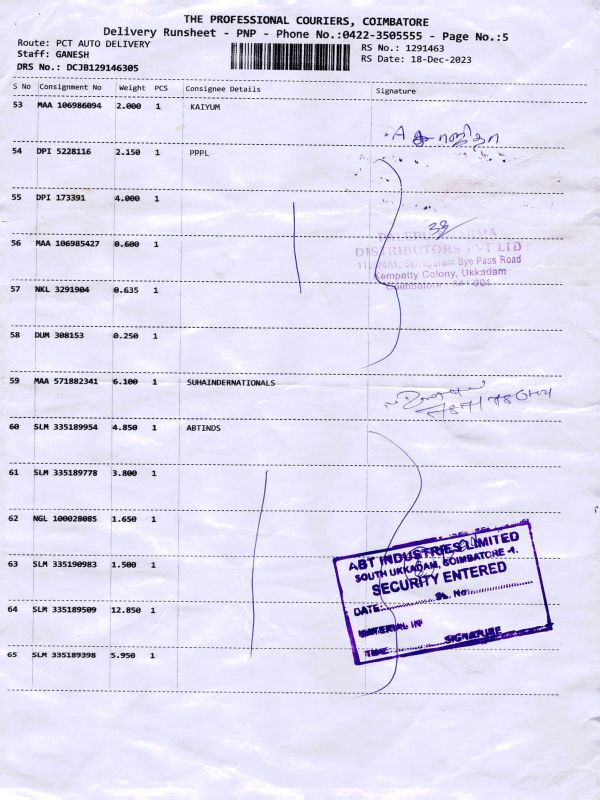 THE PROFESSIONAL COURIERS, COIMBATORE
Delivery Runsheet - PNP - Phone No.:0422-3505555 - Page No.:5
Route: PCT AUTO DELIVERY
Staff: GANESH
DRS No.: DCJB129146305
RS No.: 1291463
RS Date: 18-Dec-2023
S No Consignment No Weight PCS Consignee Details Signature
53 MAA 106986094 2.000 1 KAIYUM
54 DPI 5228116 2.150 1 PPPL
55 DPI 173391 4.000 1
56 MAA 106985427 0.600 1
DISTRIBUTORS PVT LTD
Bye Pass Road
Kempatty Colony, Ukkadam
Coimbatore
57 NKL 3291904 0.635 1
58 DUM 308153 0.250 1
59 MAA 571882341 6.100 1 SUHAINDERNATIONALS
60 SLM 335189954 4.850 1 ABTINDS
61 SLM 335189778 3.800 1
62 NGL 100028085 1.650 1
63 SLM 335190983 1.500 1
64 SLM 335189509 12.850 1
65 SLM 335189398 5.950 1
ABT INDUSTRIES LIMITED
SOUTH UKKADAM, COIMBATORE -1.
SECURITY ENTERED
DATE:.............. SL. No:..................
MATERIAL IN
TIME:.............. SIGNATURE